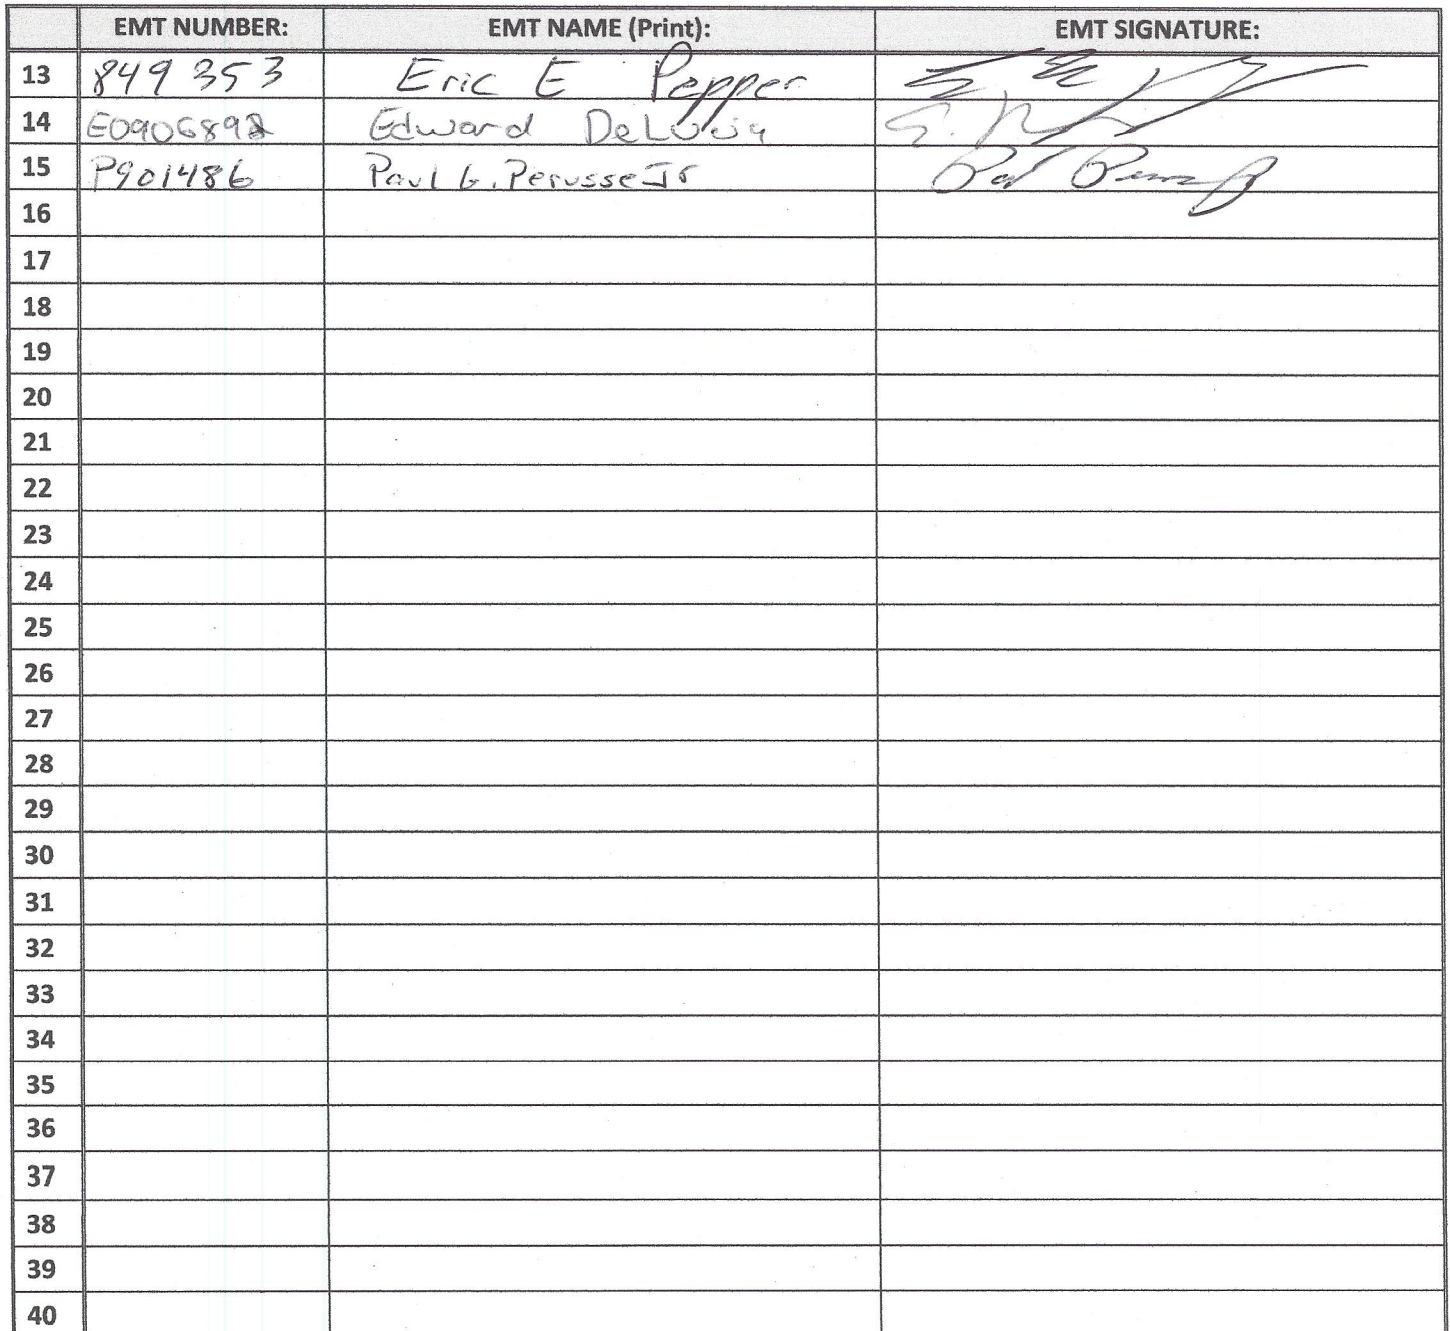 EMT NUMBER: EMT NAME (Print): EMT SIGNATURE:
13 849 353 Eric E Pepper
14 Edward DeLucia
15 P901486 Paul G. Perusse Jr
16
17
18
19
20
21
22
23
24
25
26
27
28
29
30
31
32
33
34
35
36
37
38
39
40